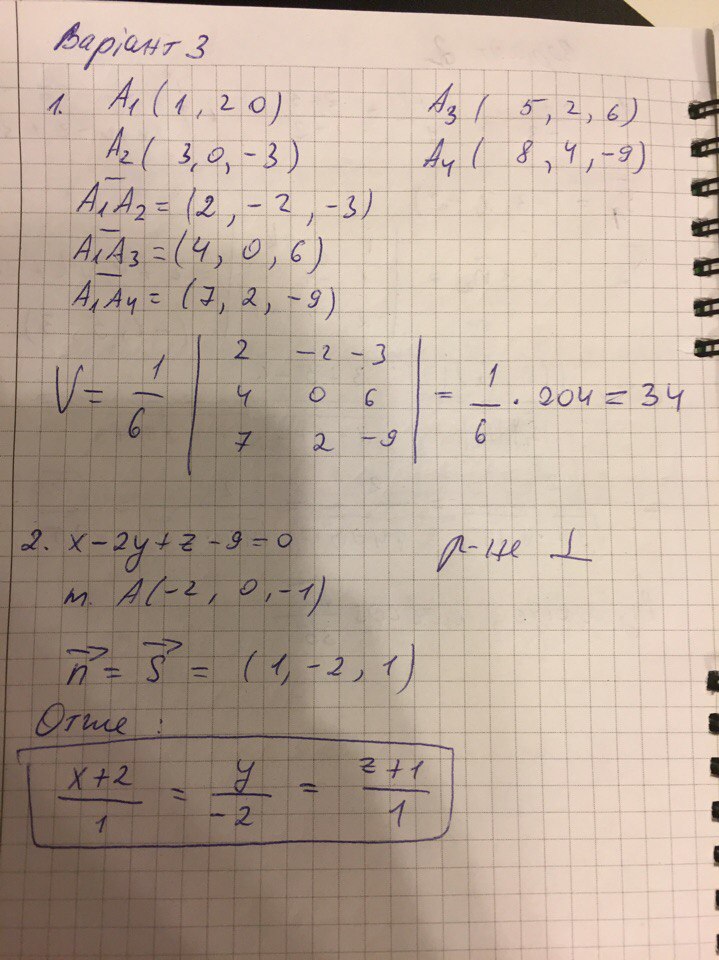 Варіант 3
1. A1 ( 1 , 2 0 ) A3 ( 5 , 2 , 6 )
A2 ( 3, 0, -3 ) A4 ( 8 , 4 , -9 )
A1A2 = (2 , -2 , -3)
A1A3 = (4 , 0 , 6)
A1A4 = (7, 2, -9)
V = 1/6 | 2 -2 -3 ; 4 0 6 ; 7 2 -9 | = 1/6 · 204 = 34
2. x - 2y + z - 9 = 0 р-не ⊥
т. A (-2 , 0 , -1)
n = S = (1, -2, 1)
Отже :
x+2/1 = y/-2 = z+1/1